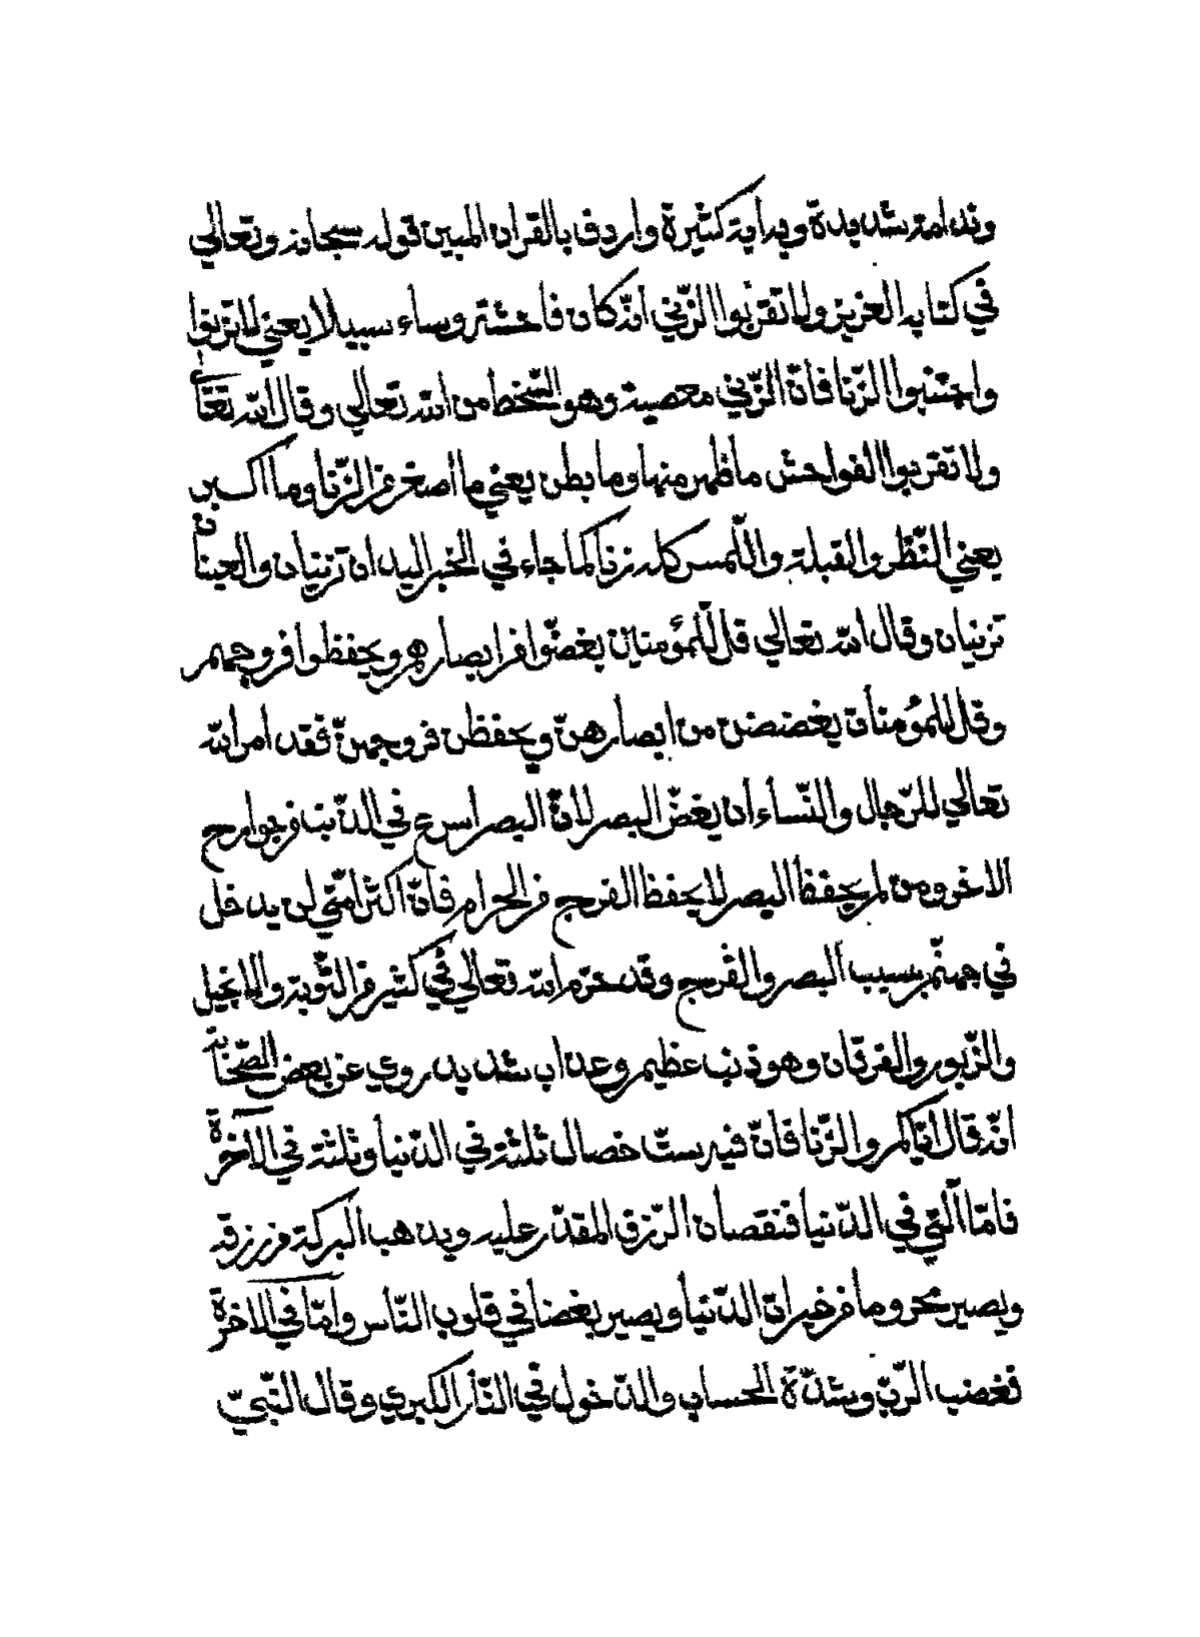 وندامة شديدة وبداية كثيرة واردف بالقران المبين قوله سبحانه وتعالي
في كتابه العزيز ولا تقربوا الزّني انّه كان فاحشة وساء سبيلا يعني لا تزنوا
واجتنبوا الزّنا فانّ الزّني معصية وهو السّخط من الله تعالي وقال الله تعا
ولا تقربوا الفواحش ما ظهر منها وما بطن يعني ما اصغر من الزّنا وما اكبر
يعني النّظر والقبلة واللّمس كله زنا كما جاء في الخبر اليدان تزنيان والعينان
تزنيان وقال الله تعالي قل لّلمؤمنين يغضّوا من ابصارهم ويحفظوا فروجهم
وقل للمؤمنات يغضضن من ابصارهنّ ويحفظن فروجهنّ فقد امر الله
تعالي للرّجال والنّساء ان يغضّ البصر لانّ البصر اسرع في الذّنب من جوارح
الاخر ومن لم يحفظ البصر لا يحفظ الفرج من الحرام فانّ اكثر امّتي لن يدخل
في جهنّم بسبب البصر والفرج وقد حرّم الله تعالي في كثير من التّورية والانجيل
والزّبور والفرقان وهو ذنب عظيم وعذاب شديد روي عن بعض الصّحابة
انّه قال ايّاكم والزّنا فانّ فيه ستّ خصال ثلثة في الدّنيا وثلثة في الآخرة
فامّا الّتي في الدّنيا فنقصان الرّزق المقدّر عليه ويذهب البركة من رزقه
ويصير محروما من خيرات الدّنيا ويصير بغضا في قلوب النّاس وامّا في الآخرة
فغضب الرّبّ وشدّة الحساب والدّخول في النّار الكبري وقال النّبيّ